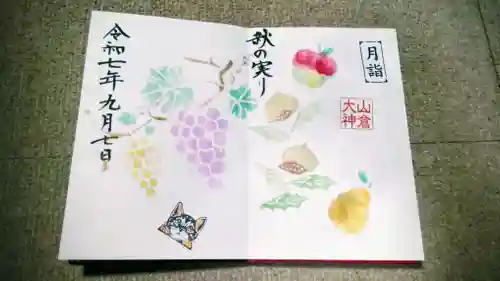 月詣
秋の実り
山倉
大神
令和七年九月七日